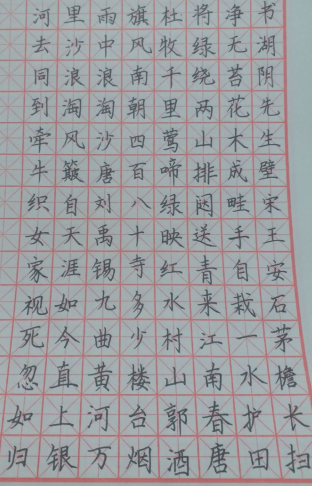 书湖阴先生壁宋王安石茅檐长扫
净无苔花木成畦手自栽一水护田
将绿绕两山排闼送青来江南春唐
杜牧千里莺啼绿映红水村山郭酒
旗风南朝四百八十寺多少楼台烟
雨中浪淘沙唐刘禹锡九曲黄河万
里沙浪淘风簸自天涯如今直上银
河去同到牵牛织女家视死忽如归